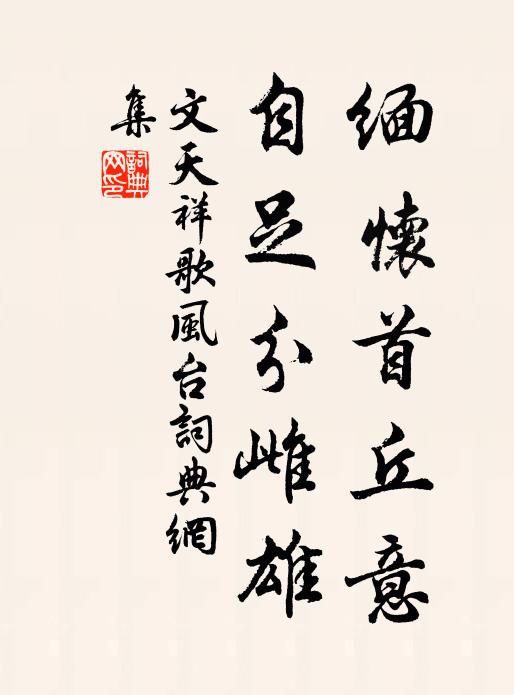 緬懷首丘意
自足分雌雄
文天祥歌風台詞典網
集
詞典
网印